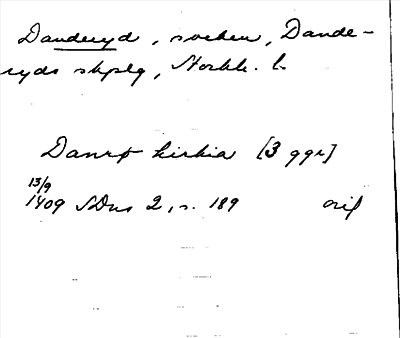 Danderyd, socken, Dande-
ryds skplg, Stockh. l.
Danrø kirkia [3 ggr]
13/9
1409 SDns 2, s. 189 orig